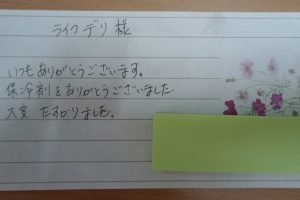 ライフデリ様
いつもありがとうございます。
保冷剤をありがとうございました
大変 たすかりました。